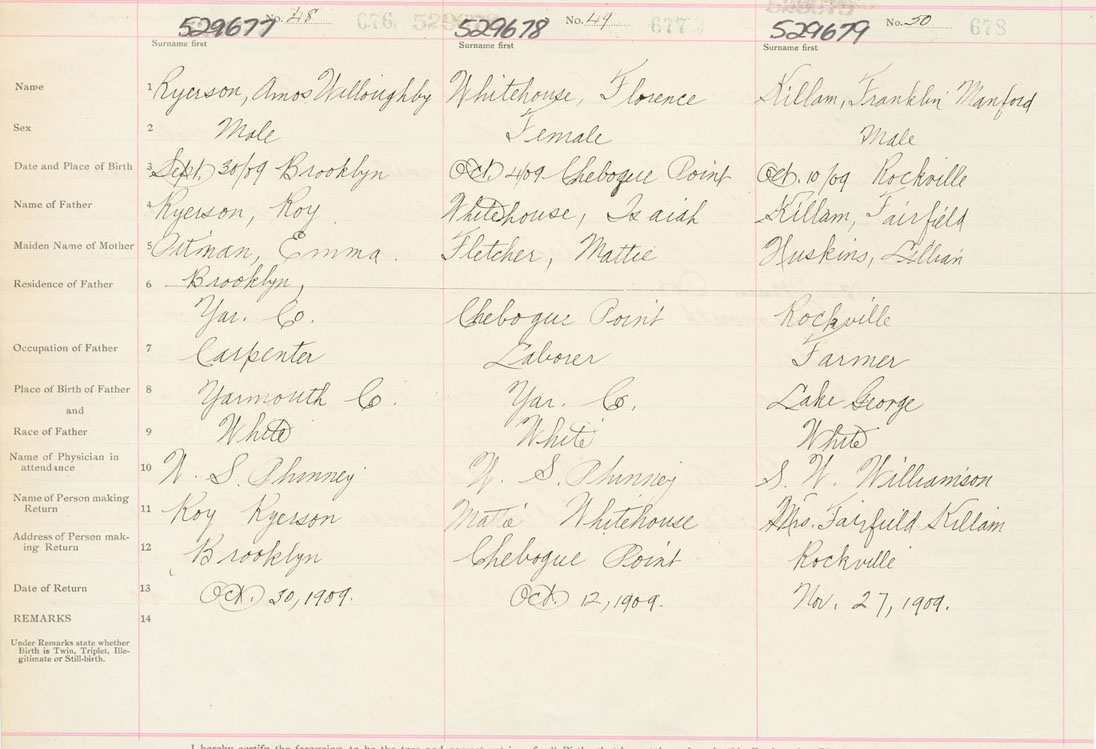 529677 No. 48 676
529678 No. 49 677
529679 No. 50 678
Surname first Surname first Surname first
Name 1 Ryerson, Amos Willoughby Whitehouse, Florence Killam, Franklin Manford
Sex 2 Male Female Male
Date and Place of Birth 3 Sept. 30/09 Brooklyn Oct. 4/09 Chebogue Point Oct. 10/09 Rockville
Name of Father 4 Ryerson, Roy Whitehouse, Isaiah Killam, Fairfield
Maiden Name of Mother 5 Pitman, Emma. Fletcher, Mattie Huskins, Lillian
Residence of Father 6 Brooklyn,
Yar. Co. Chebogue Point Rockville
Occupation of Father 7 Carpenter Laborer Farmer
Place of Birth of Father 8 Yarmouth Co. Yar. Co. Lake George
and
Race of Father 9 White White White
Name of Physician in
attendance 10 W. S. Phinney W. S. Phinney S. W. Williamson
Name of Person making
Return 11 Roy Ryerson Matie Whitehouse Mrs. Fairfield Killam
Address of Person mak-
ing Return 12 Brooklyn Chebogue Point Rockville
Date of Return 13 Oct. 30, 1909. Oct. 12, 1909. Nov. 27, 1909.
REMARKS 14
Under Remarks state whether
Birth is Twin, Triplet, Ille-
gitimate or Still-birth.
I hereby certify the foregoing to be the true and correct